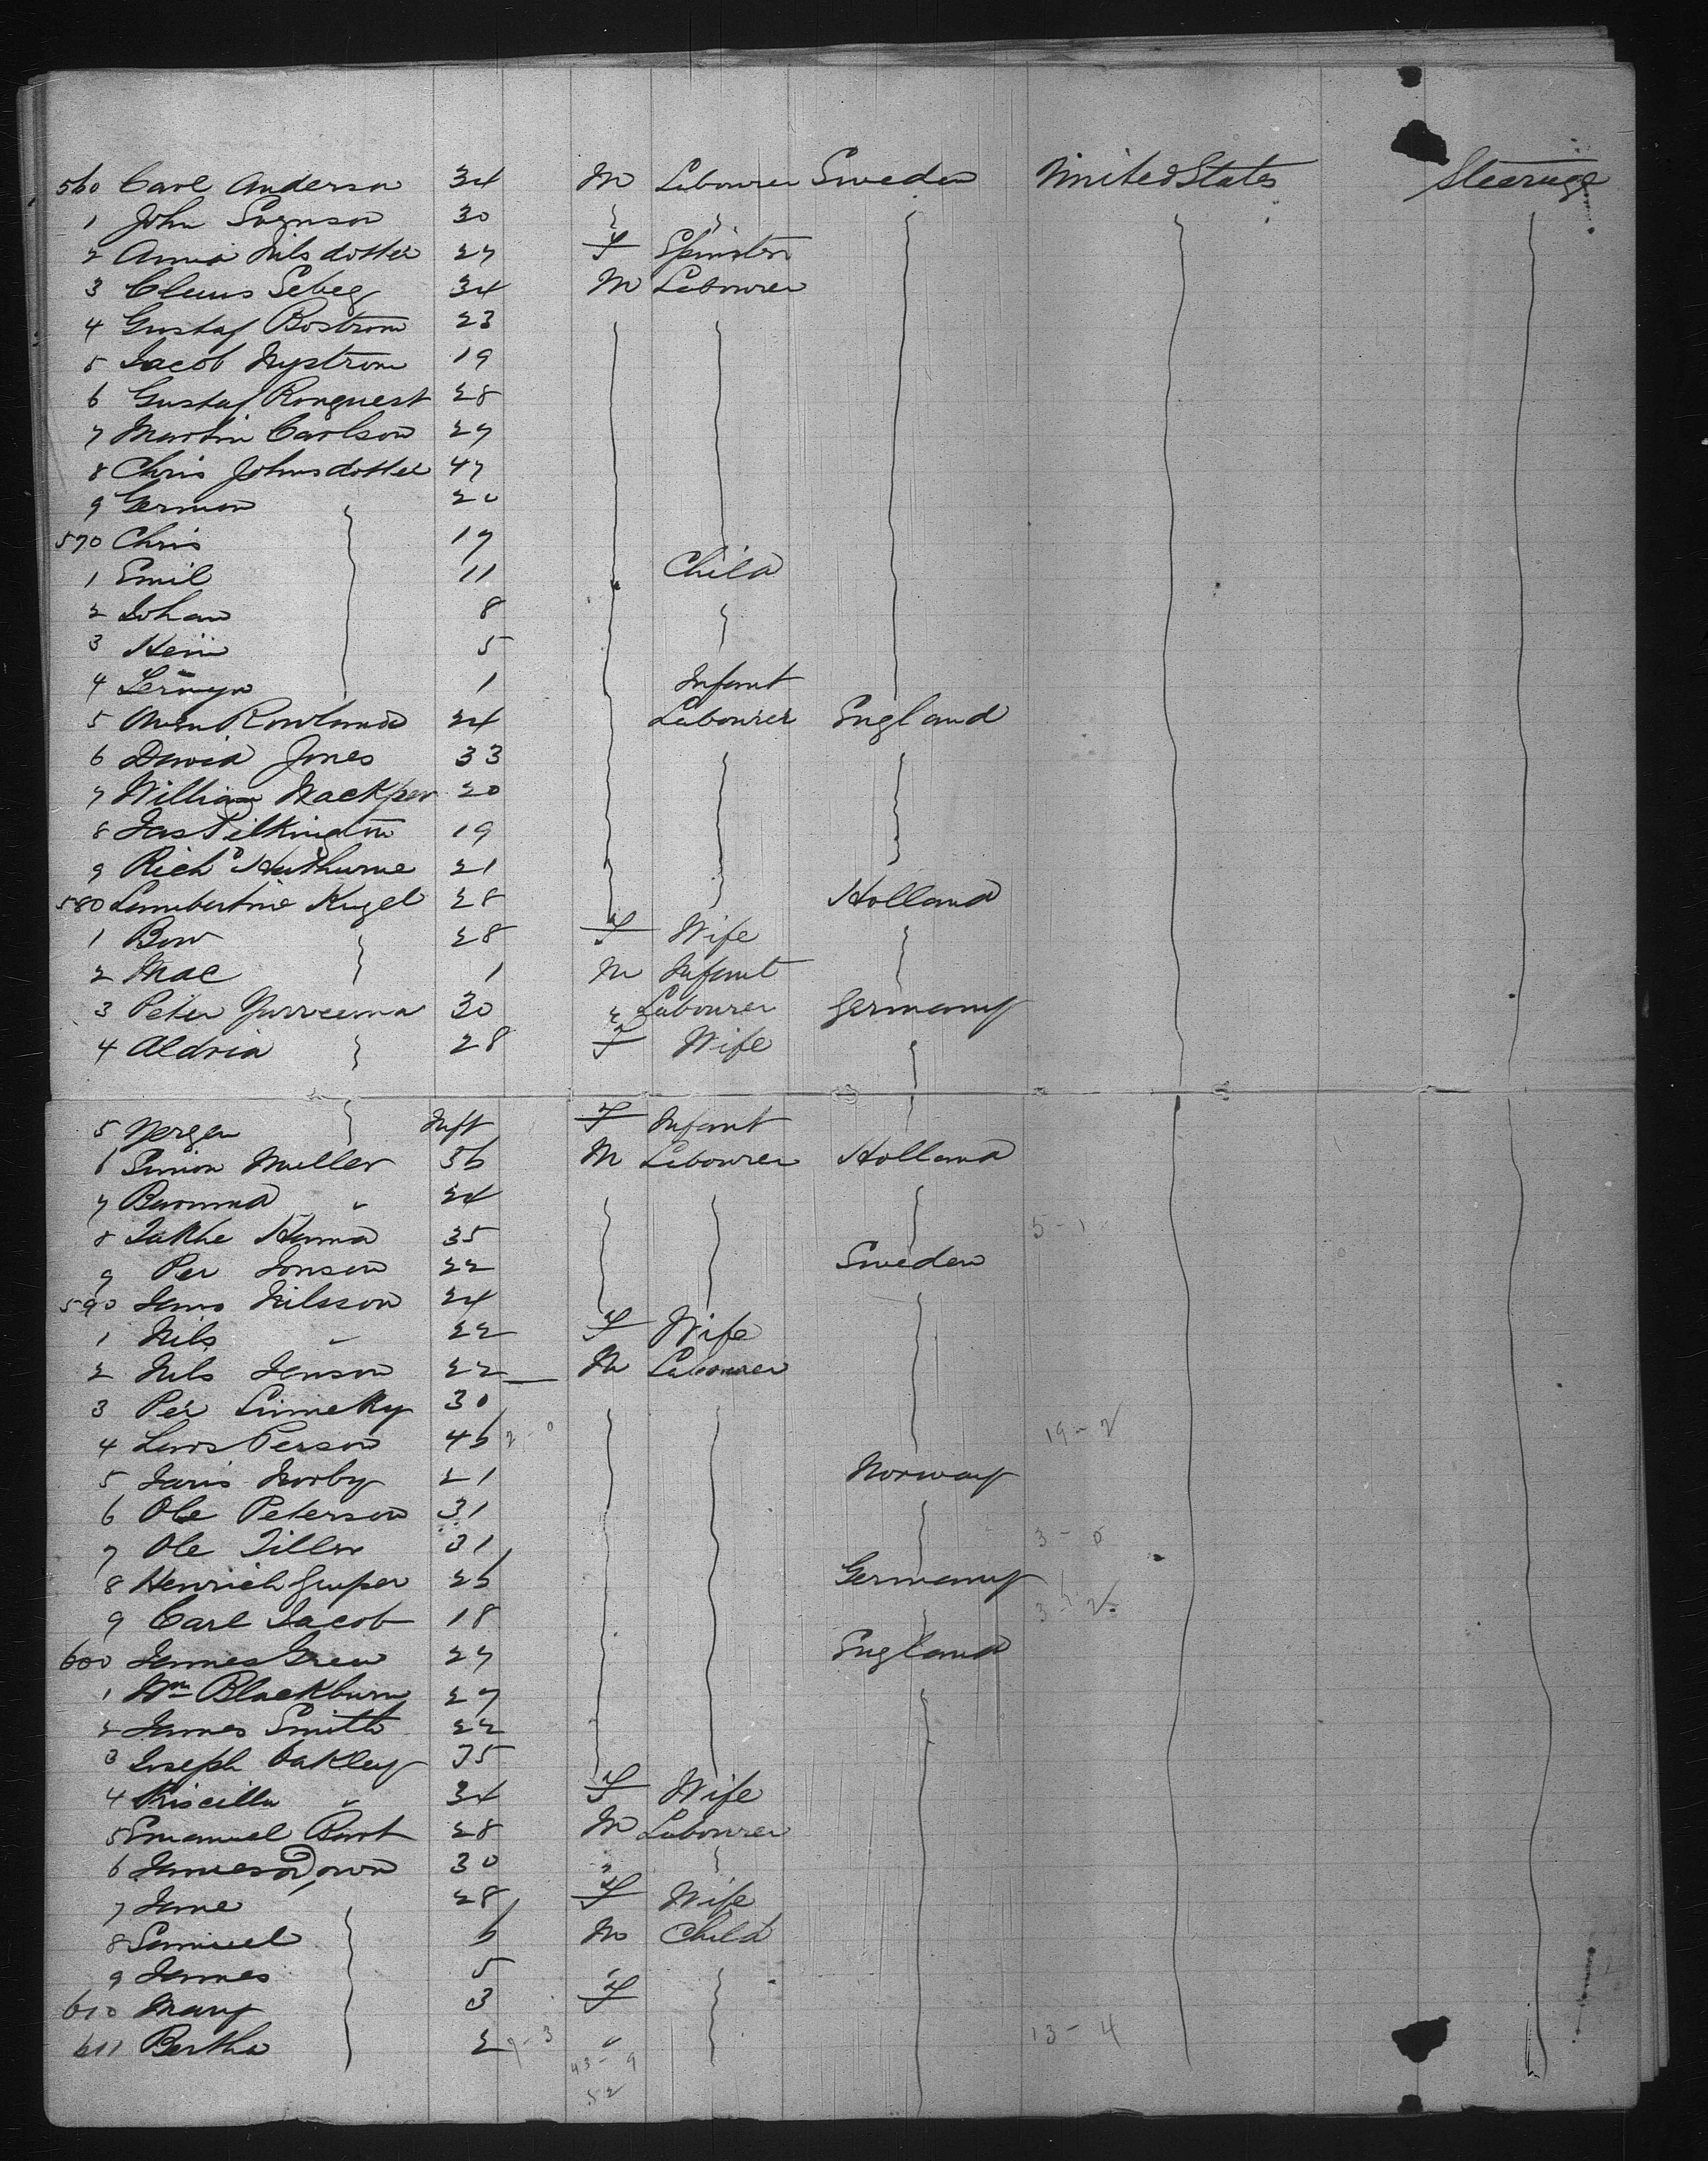 560 Carl Anderson 34 M Labourer Sweden United States Steerage
1 John Svenson 30
2 Anna Nilsdotter 27 F Spinster
3 Claus Seberg 34 M Labourer
4 Gustaf Bostrom 23
5 Jacob Nystrom 19
6 Gustaf Ronquest 28
7 Martin Carlson 27
8 Chris Johnsdotter 47
9 German 20
570 Chris 17
1 Emil 11 Child
2 Johan 8
3 5
4 1 Infant
5 Owen Rowlands 24 Labourer England
6 David Jones 33
7 William 20
8 Jas Pilkington 19
9 Richd 21
580 Lambertine Kugel 28 Holland
1 Bow 28 F Wife
2 Mac 1 M Infant
3 Peter 30 " Labourer Germany
4 Aldria 28 F Wife
5 Inft F Infant
6 Simon Muller 36 M Labourer Holland
7 " 24
8 35
9 Per Jonson 22 Sweden
590 Jans Nilsson 24
1 Nils " 22 F Wife
2 Nils Janson 22 M Labourer
3 Per 30
4 Lars Person 46 19-2
5 Norby 21 Norway
6 Ole Peterson 31
7 Ole 31 3-0
8 Henrich 26 Germany
9 Carl Jacob 18
600 James Grew 27 England
1 Wm Blackburn 27
2 James Smith 22
3 Joseph Oakley 35
4 Priscilla " 34 F Wife
5 Emanuel 28 M Labourer
6 James Down 30 "
7 Jane 28 F Wife
8 Samuel 6 M Child
9 James 5 "
610 Mary 3 F
611 Bertha 2 9-3 " 13-4
43-9
52